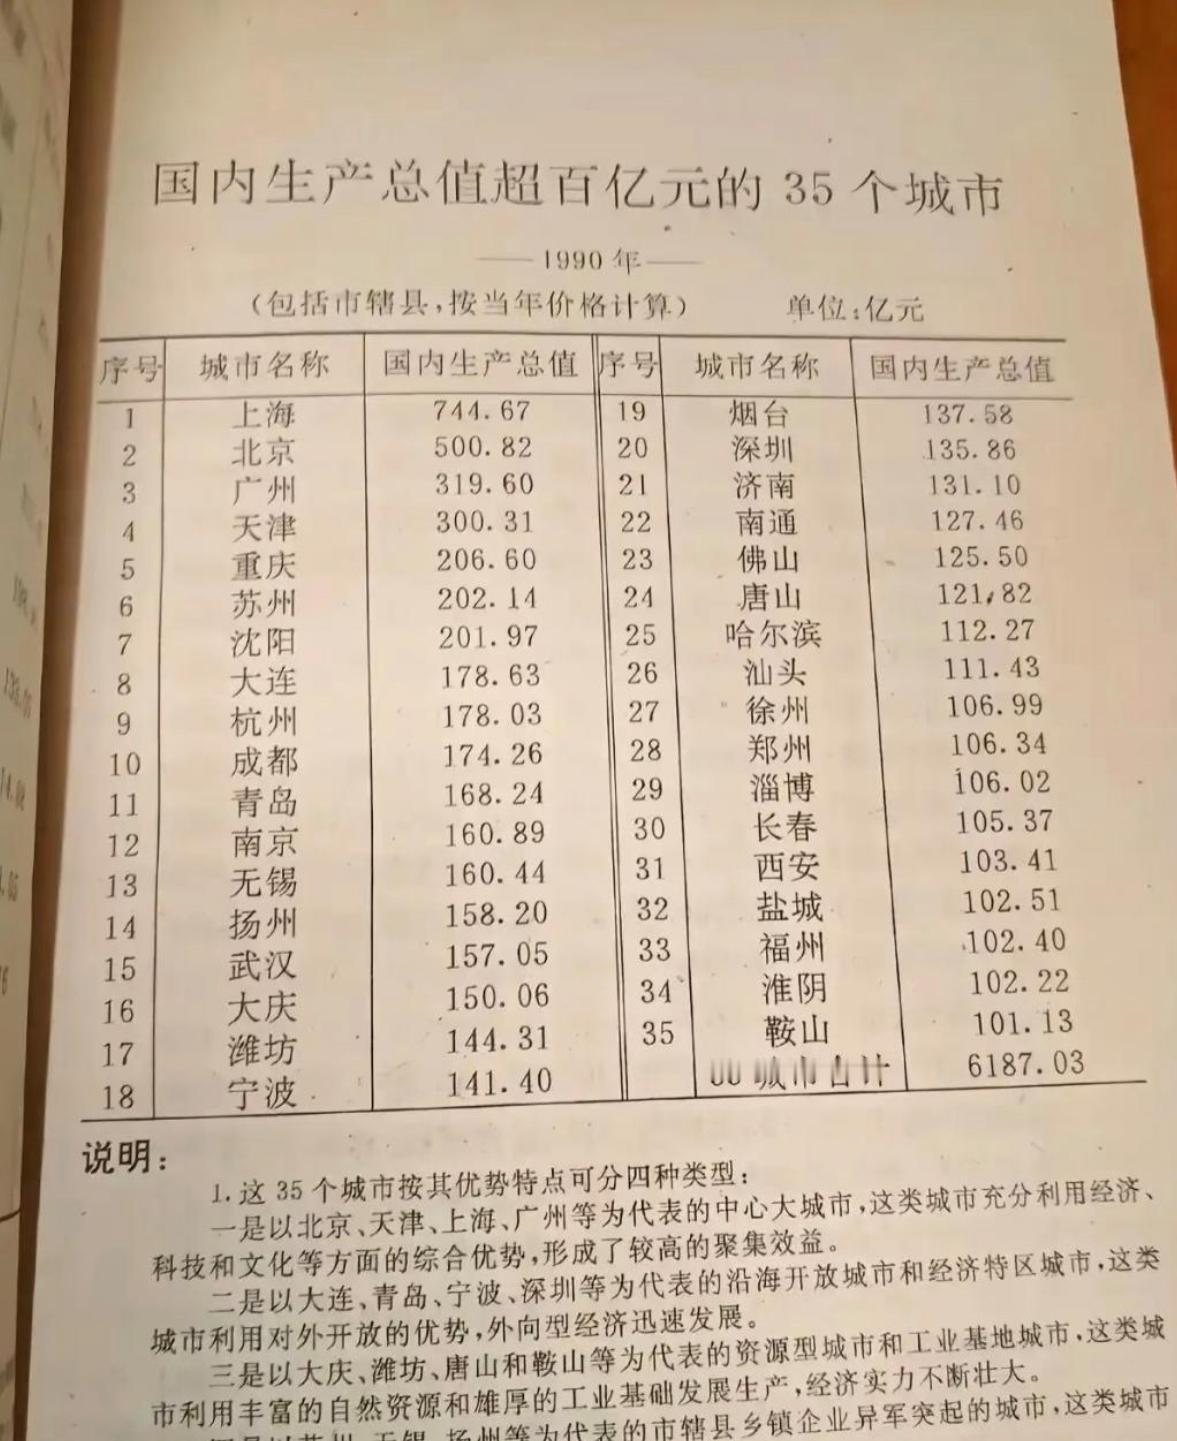 国内生产总值超百亿元的 35 个城市
——1990 年——
（包括市辖县，按当年价格计算） 单位：亿元
序号 城市名称 国内生产总值 序号 城市名称 国内生产总值
1 上海 744.67 19 烟台 137.58
2 北京 500.82 20 深圳 135.86
3 广州 319.60 21 济南 131.10
4 天津 300.31 22 南通 127.46
5 重庆 206.60 23 佛山 125.50
6 苏州 202.14 24 唐山 121.82
7 沈阳 201.97 25 哈尔滨 112.27
8 大连 178.63 26 汕头 111.43
9 杭州 178.03 27 徐州 106.99
10 成都 174.26 28 郑州 106.34
11 青岛 168.24 29 淄博 106.02
12 南京 160.89 30 长春 105.37
13 无锡 160.44 31 西安 103.41
14 扬州 158.20 32 盐城 102.51
15 武汉 157.05 33 福州 102.40
16 大庆 150.06 34 淮阴 102.22
17 潍坊 144.31 35 鞍山 101.13
18 宁波 141.40 城市合计 6187.03
说明：
1. 这 35 个城市按其优势特点可分四种类型：
一是以北京、天津、上海、广州等为代表的中心大城市，这类城市充分利用经济、
科技和文化等方面的综合优势，形成了较高的聚集效益。
二是以大连、青岛、宁波、深圳等为代表的沿海开放城市和经济特区城市，这类
城市利用对外开放的优势，外向型经济迅速发展。
三是以大庆、潍坊、唐山和鞍山等为代表的资源型城市和工业基地城市，这类城
市利用丰富的自然资源和雄厚的工业基础发展生产，经济实力不断壮大。
四是以苏州、无锡、扬州等为代表的市辖县乡镇企业异军突起的城市，这类城市